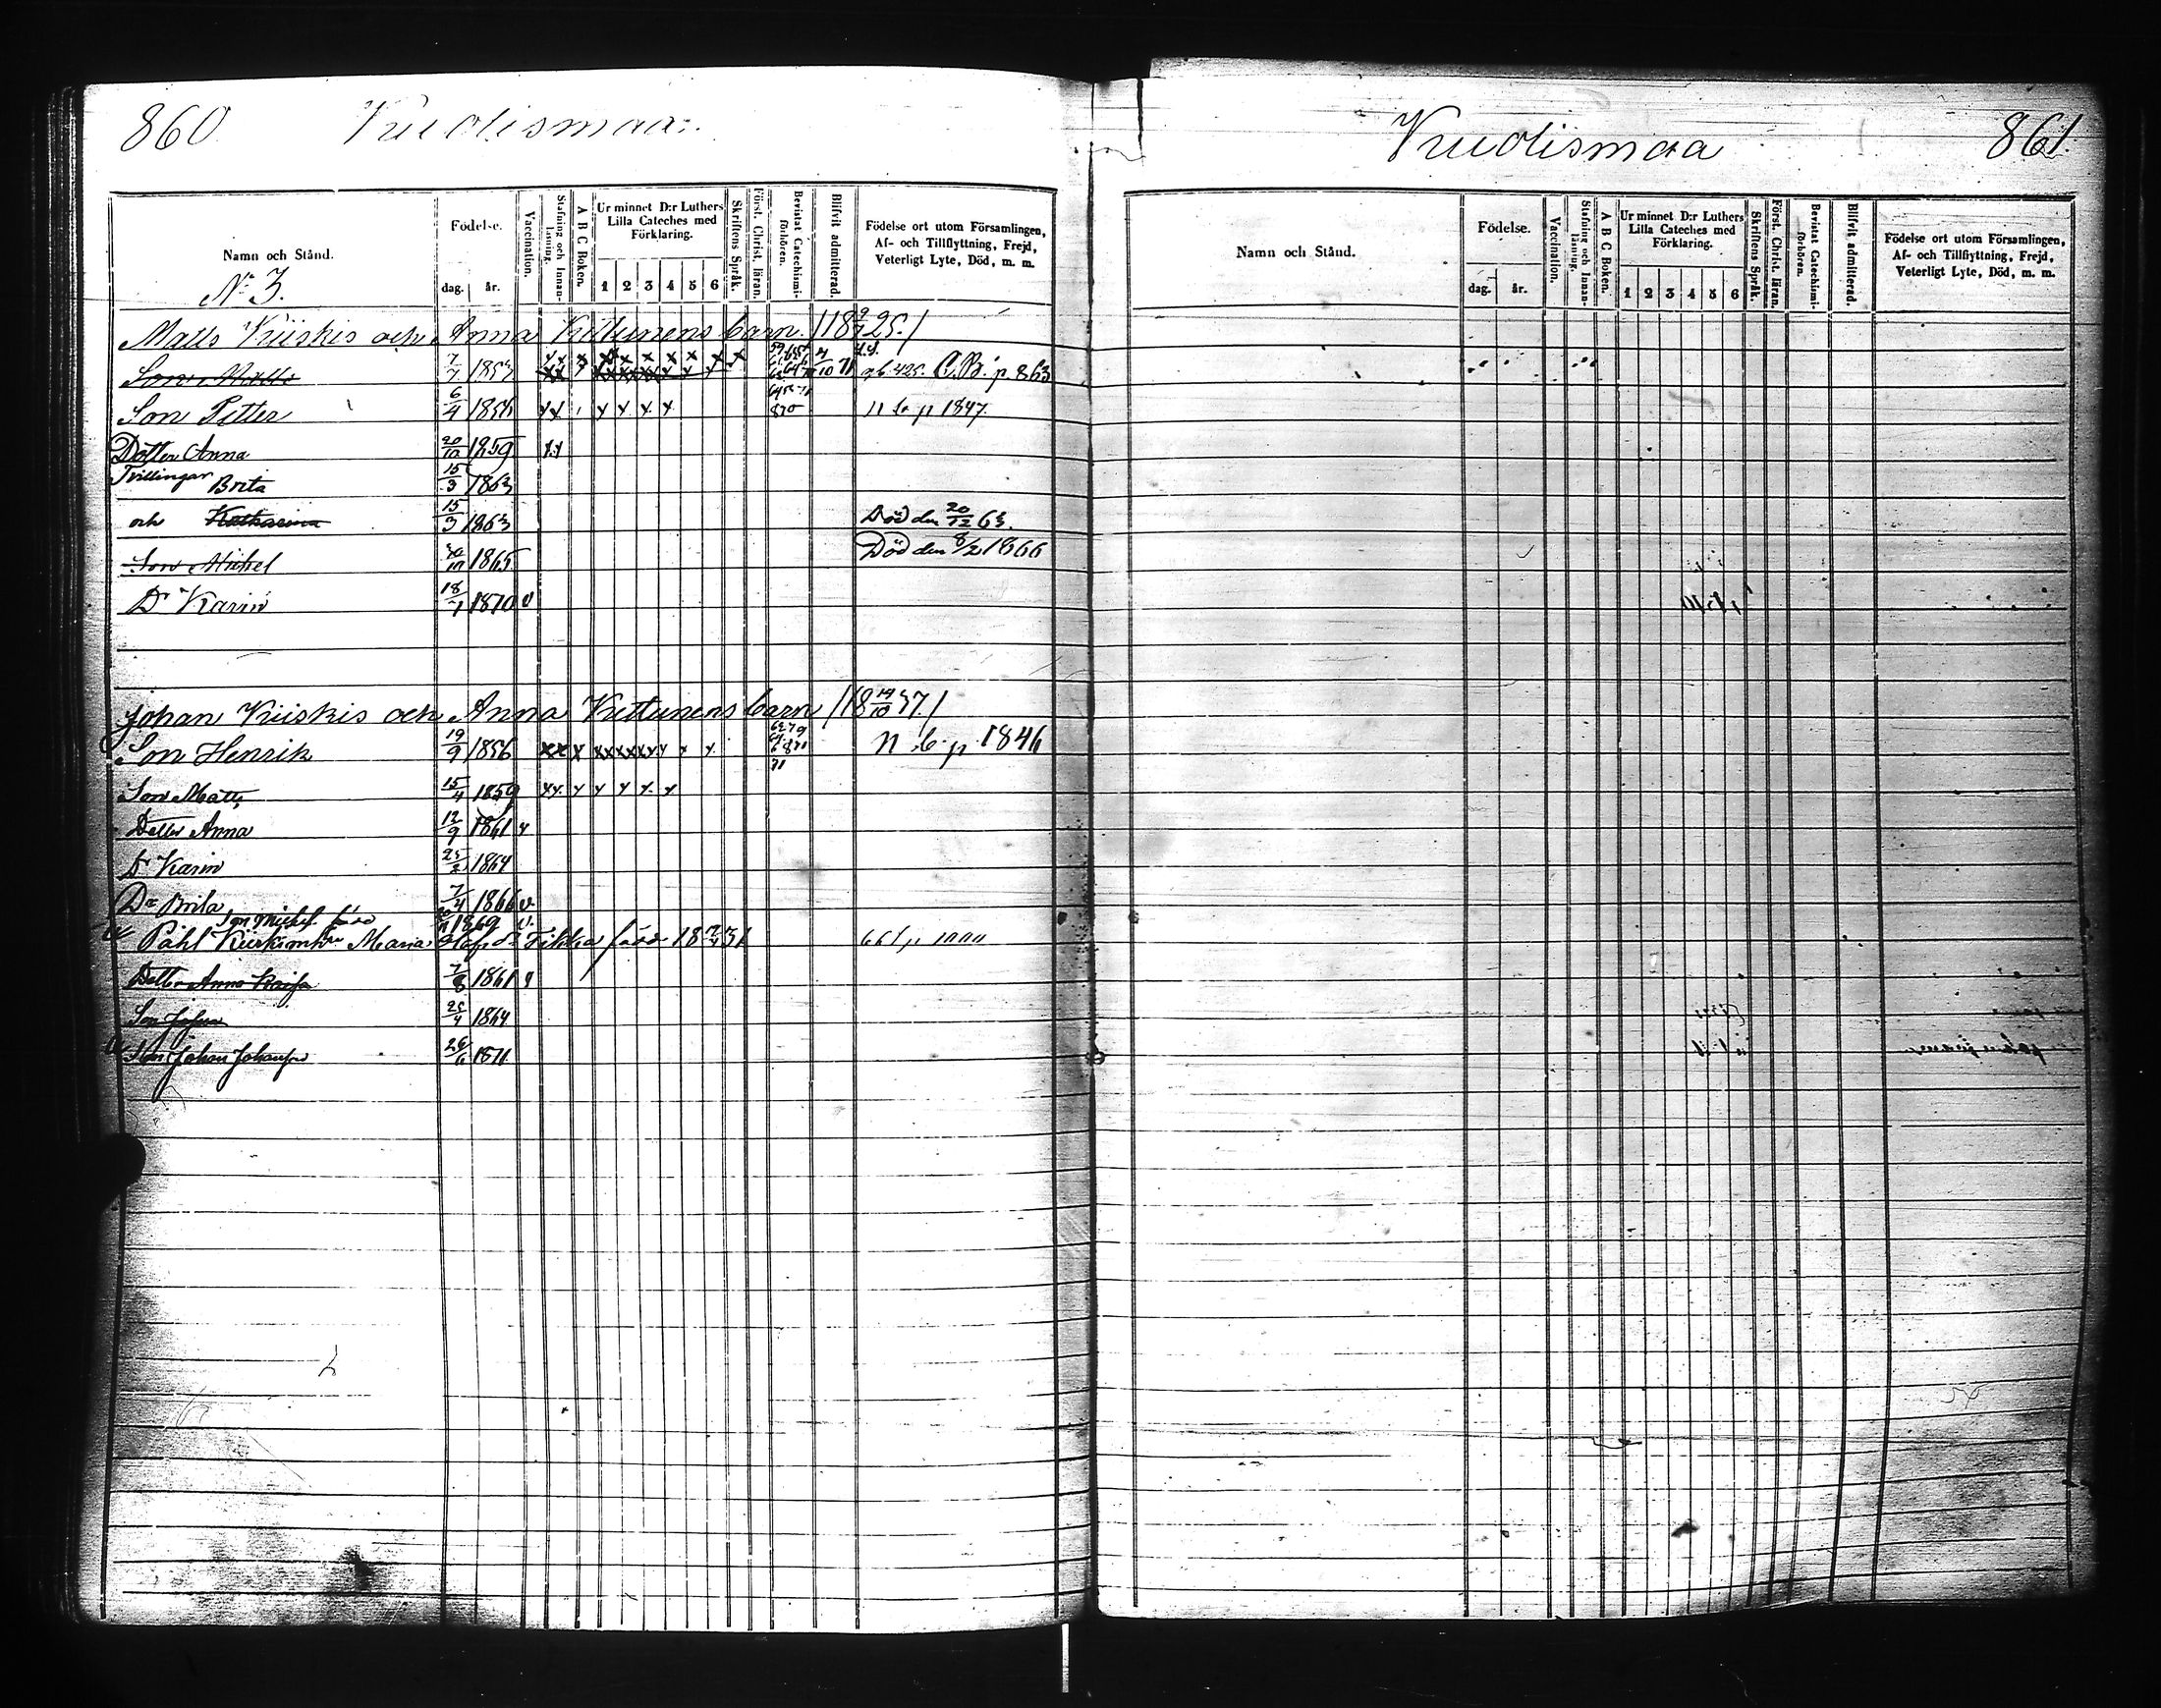 860 Kuolismaa
Namn och Stånd.
No 3.
Födelse.
dag. år.
Vaccination.
Stafning och Innanläsning.
A B C Boken.
Ur minnet D:r Luthers Lilla Cateches med Förklaring.
1 2 3 4 5 6
Skriftens Språk.
Först. Christ. läran.
Bevistat Catechismiförhören.
Blifvit admitterad.
Födelse ort utom Församlingen, Af- och Tillflyttning, Frejd, Veterligt Lyte, Död, m. m.
Matts Kiiskis och Anna Kettunens barn
Son Matts 7/7 1853 4/10 71 C.B. p. 863
Son Petter 6/4 1854 n b p 1847.
Dotter Anna 20/10 1859
Tvillingar Brita 15/3 1863
och Katharina 15/3 1863 Död den 20/12 63.
Son Mickel 1865 Död den 8/2 1866
Dr Karin 18/7 1870 v
Johan Kiiskis och Anna Kettunens barn /18 14/10 37./
Son Henrik 19/9 1856 n b p 1846
Son Matts 15/4 1859
Dotter Anna 12/9 1861 v
Dr Karin 25/2 1864
Dr Brita 7/4 1866 v
Son Mickel född 1869 v.
Påhl Kiiskis Maria Tikka född
Dotter Anna Kaisa 7/8 1861 v
Son Johan 25/4 1864
Son Johan Johansson 26/6 1871.
Kuolismaa 861
Namn och Stånd.
Födelse.
dag. år.
Vaccination.
Stafning och Innanläsning.
A B C Boken.
Ur minnet D:r Luthers Lilla Cateches med Förklaring.
1 2 3 4 5 6
Skriftens Språk.
Först. Christ. läran.
Bevistat Catechismiförhören.
Blifvit admitterad.
Födelse ort utom Församlingen, Af- och Tillflyttning, Frejd, Veterligt Lyte, Död, m. m.